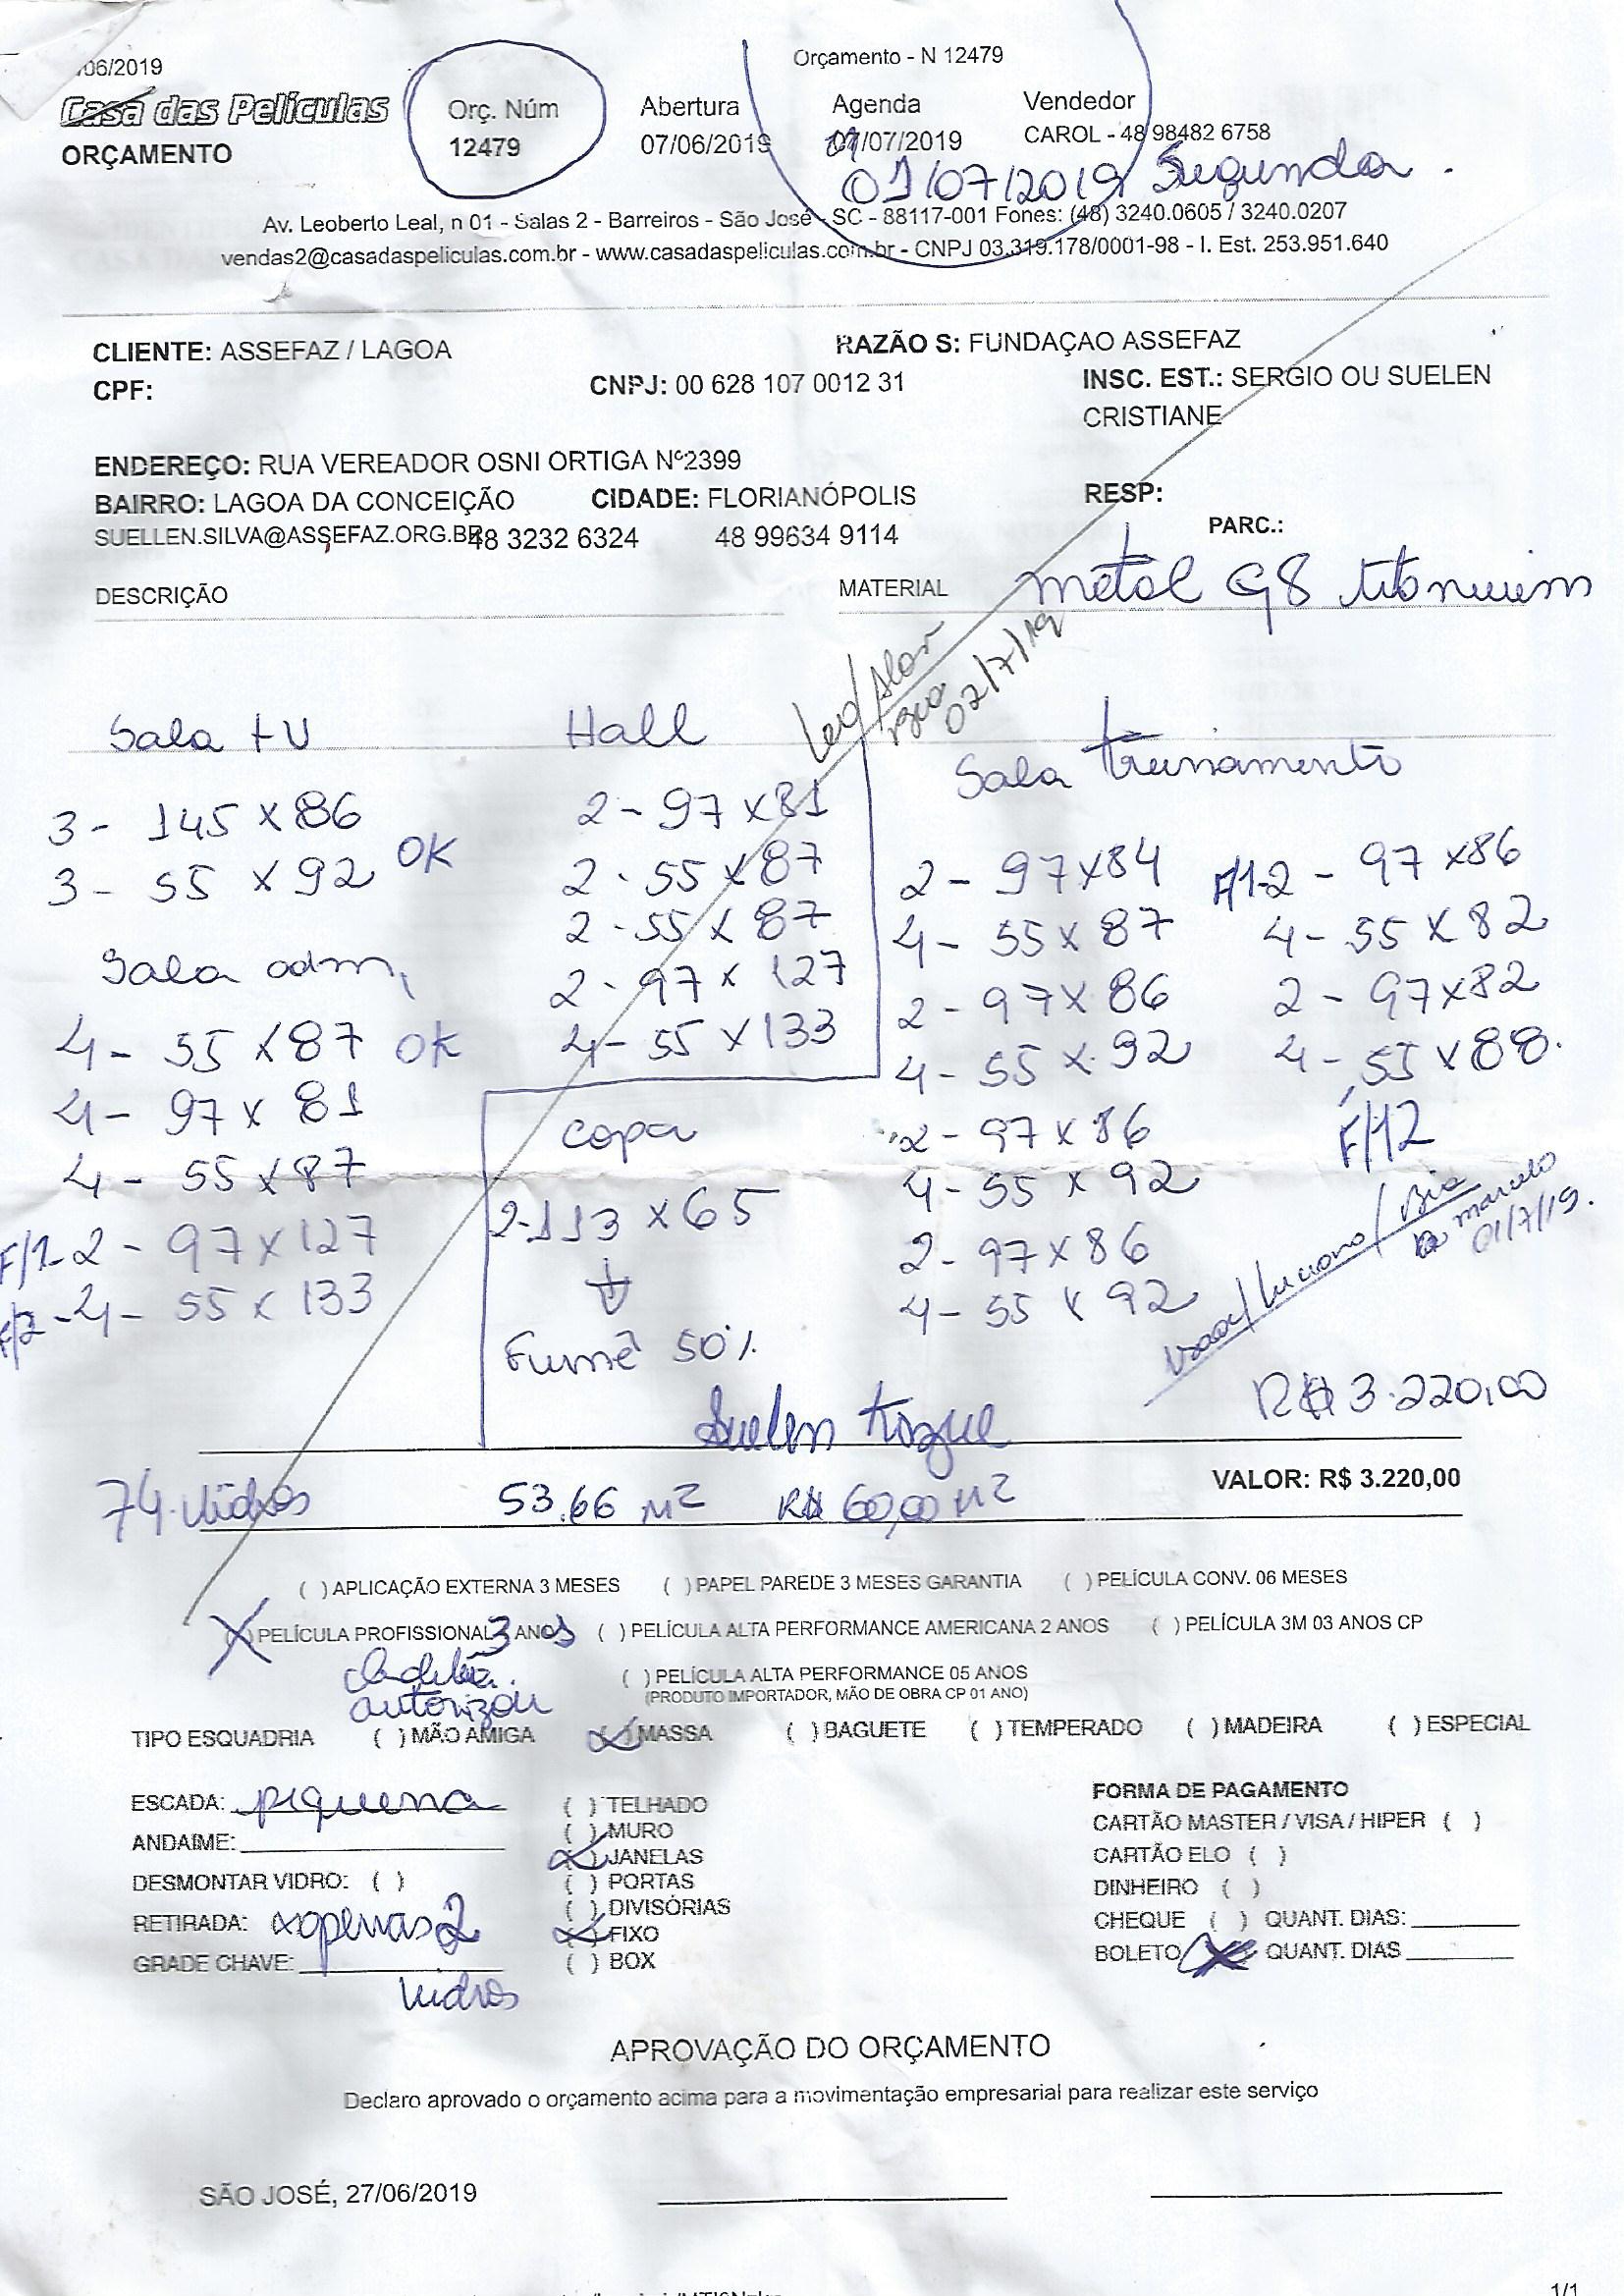 /06/2019
Orçamento - N 12479
Casa das Películas
ORÇAMENTO
Orç. Núm
12479
Abertura
07/06/2019
Agenda
/07/2019
Vendedor
CAROL - 48 98482 6758
01/07/2019 Segunda
Av. Leoberto Leal, n 01 - Salas 2 - Barreiros - São José - SC - 88117-001 Fones: (48) 3240.0605 / 3240.0207
vendas2@casadaspeliculas.com.br - www.casadaspeliculas.com.br - CNPJ 03.319.178/0001-98 - I. Est. 253.951.640
CLIENTE: ASSEFAZ / LAGOA
RAZÃO S: FUNDAÇAO ASSEFAZ
CPF:
CNPJ: 00 628 107 0012 31
INSC. EST.: SERGIO OU SUELEN
CRISTIANE
ENDEREÇO: RUA VEREADOR OSNI ORTIGA Nº2399
BAIRRO: LAGOA DA CONCEIÇÃO
CIDADE: FLORIANÓPOLIS
RESP:
PARC.:
SUELLEN.SILVA@ASSEFAZ.ORG.BR
48 3232 6324
48 99634 9114
DESCRIÇÃO
MATERIAL
metal G8 titanium
02/7/19
Sala tv
3 - 145 x 86
3 - 55 x 92
OK
Sala adm,
4 - 55 x 87 OK
4 - 97 x 81
4 - 55 x 87
F/1-2 - 97 x 127
F/2-4 - 55 x 133
Hall
2 - 97 x 81
2 - 55 x 87
2 - 55 x 87
2 - 97 x 127
4 - 55 x 133
copa
2-113 x 65
Fumê 50%
Sala treinamento
2 - 97 x 84
4 - 55 x 87
2 - 97 x 86
4 - 55 x 92
2 - 97 x 86
4 - 55 x 92
2 - 97 x 86
4 - 55 x 92
F/1-2 - 97 x 86
4 - 55 x 82
2 - 97 x 82
4 - 55 x 88.
F/12
Luciano / Bia
marcelo
01/7/19.
R$ 3.220,00
Suelen
74 Vidros
53.66 M2
R$ 60,00 M2
VALOR: R$ 3.220,00
( ) APLICAÇÃO EXTERNA 3 MESES ( ) PAPEL PAREDE 3 MESES GARANTIA ( ) PELÍCULA CONV. 06 MESES
( ) PELÍCULA PROFISSIONAL 3 ANOS ( ) PELÍCULA ALTA PERFORMANCE AMERICANA 2 ANOS ( ) PELÍCULA 3M 03 ANOS CP
autorizou
( ) PELÍCULA ALTA PERFORMANCE 05 ANOS
(PRODUTO IMPORTADOR, MÃO DE OBRA CP 01 ANO)
TIPO ESQUADRIA ( ) MÃO AMIGA (X) MASSA ( ) BAGUETE ( ) TEMPERADO ( ) MADEIRA ( ) ESPECIAL
ESCADA: piquena
ANDAIME:
DESMONTAR VIDRO: ( )
RETIRADA: apenas 2
GRADE CHAVE:
Vidros
( ) TELHADO
( ) MURO
(X) JANELAS
( ) PORTAS
( ) DIVISÓRIAS
(X) FIXO
( ) BOX
FORMA DE PAGAMENTO
CARTÃO MASTER / VISA / HIPER ( )
CARTÃO ELO ( )
DINHEIRO ( )
CHEQUE ( ) QUANT. DIAS:
BOLETO (X) QUANT. DIAS
APROVAÇÃO DO ORÇAMENTO
Declaro aprovado o orçamento acima para a movimentação empresarial para realizar este serviço
SÃO JOSÉ, 27/06/2019
1/1